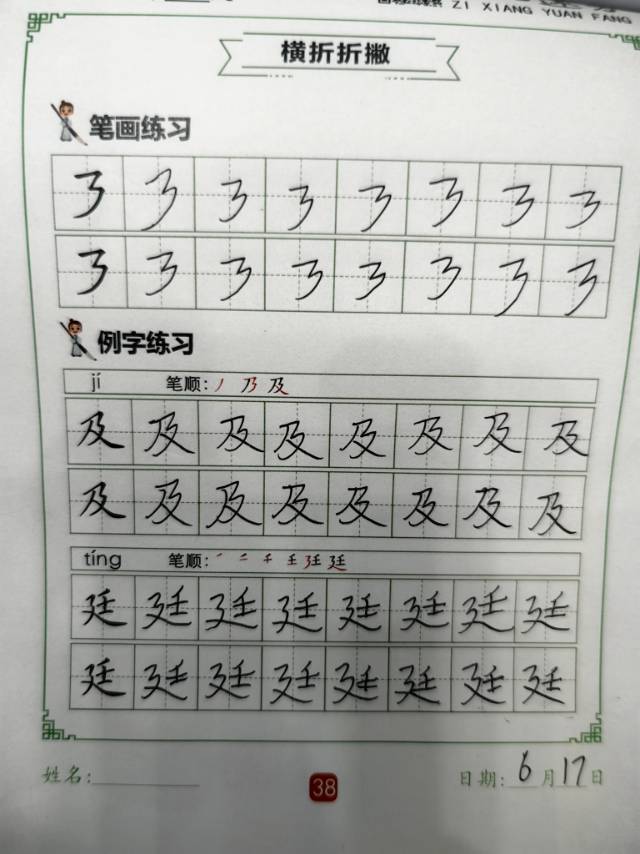 ZI XIANG YUAN FANG
横折折撇
笔画练习
㇋ ㇋ ㇋ ㇋ ㇋ ㇋ ㇋ ㇋
㇋ ㇋ ㇋ ㇋ ㇋ ㇋ ㇋ ㇋
例字练习
jí 笔顺: 丿 乃 及
及 及 及 及 及 及 及 及
及 及 及 及 及 及 及 及
tíng 笔顺: ㇒ 二 千 壬 廷 廷
廷 廷 廷 廷 廷 廷 廷 廷
廷 廷 廷 廷 廷 廷 廷 廷
姓名: 38 日期: 6月17日